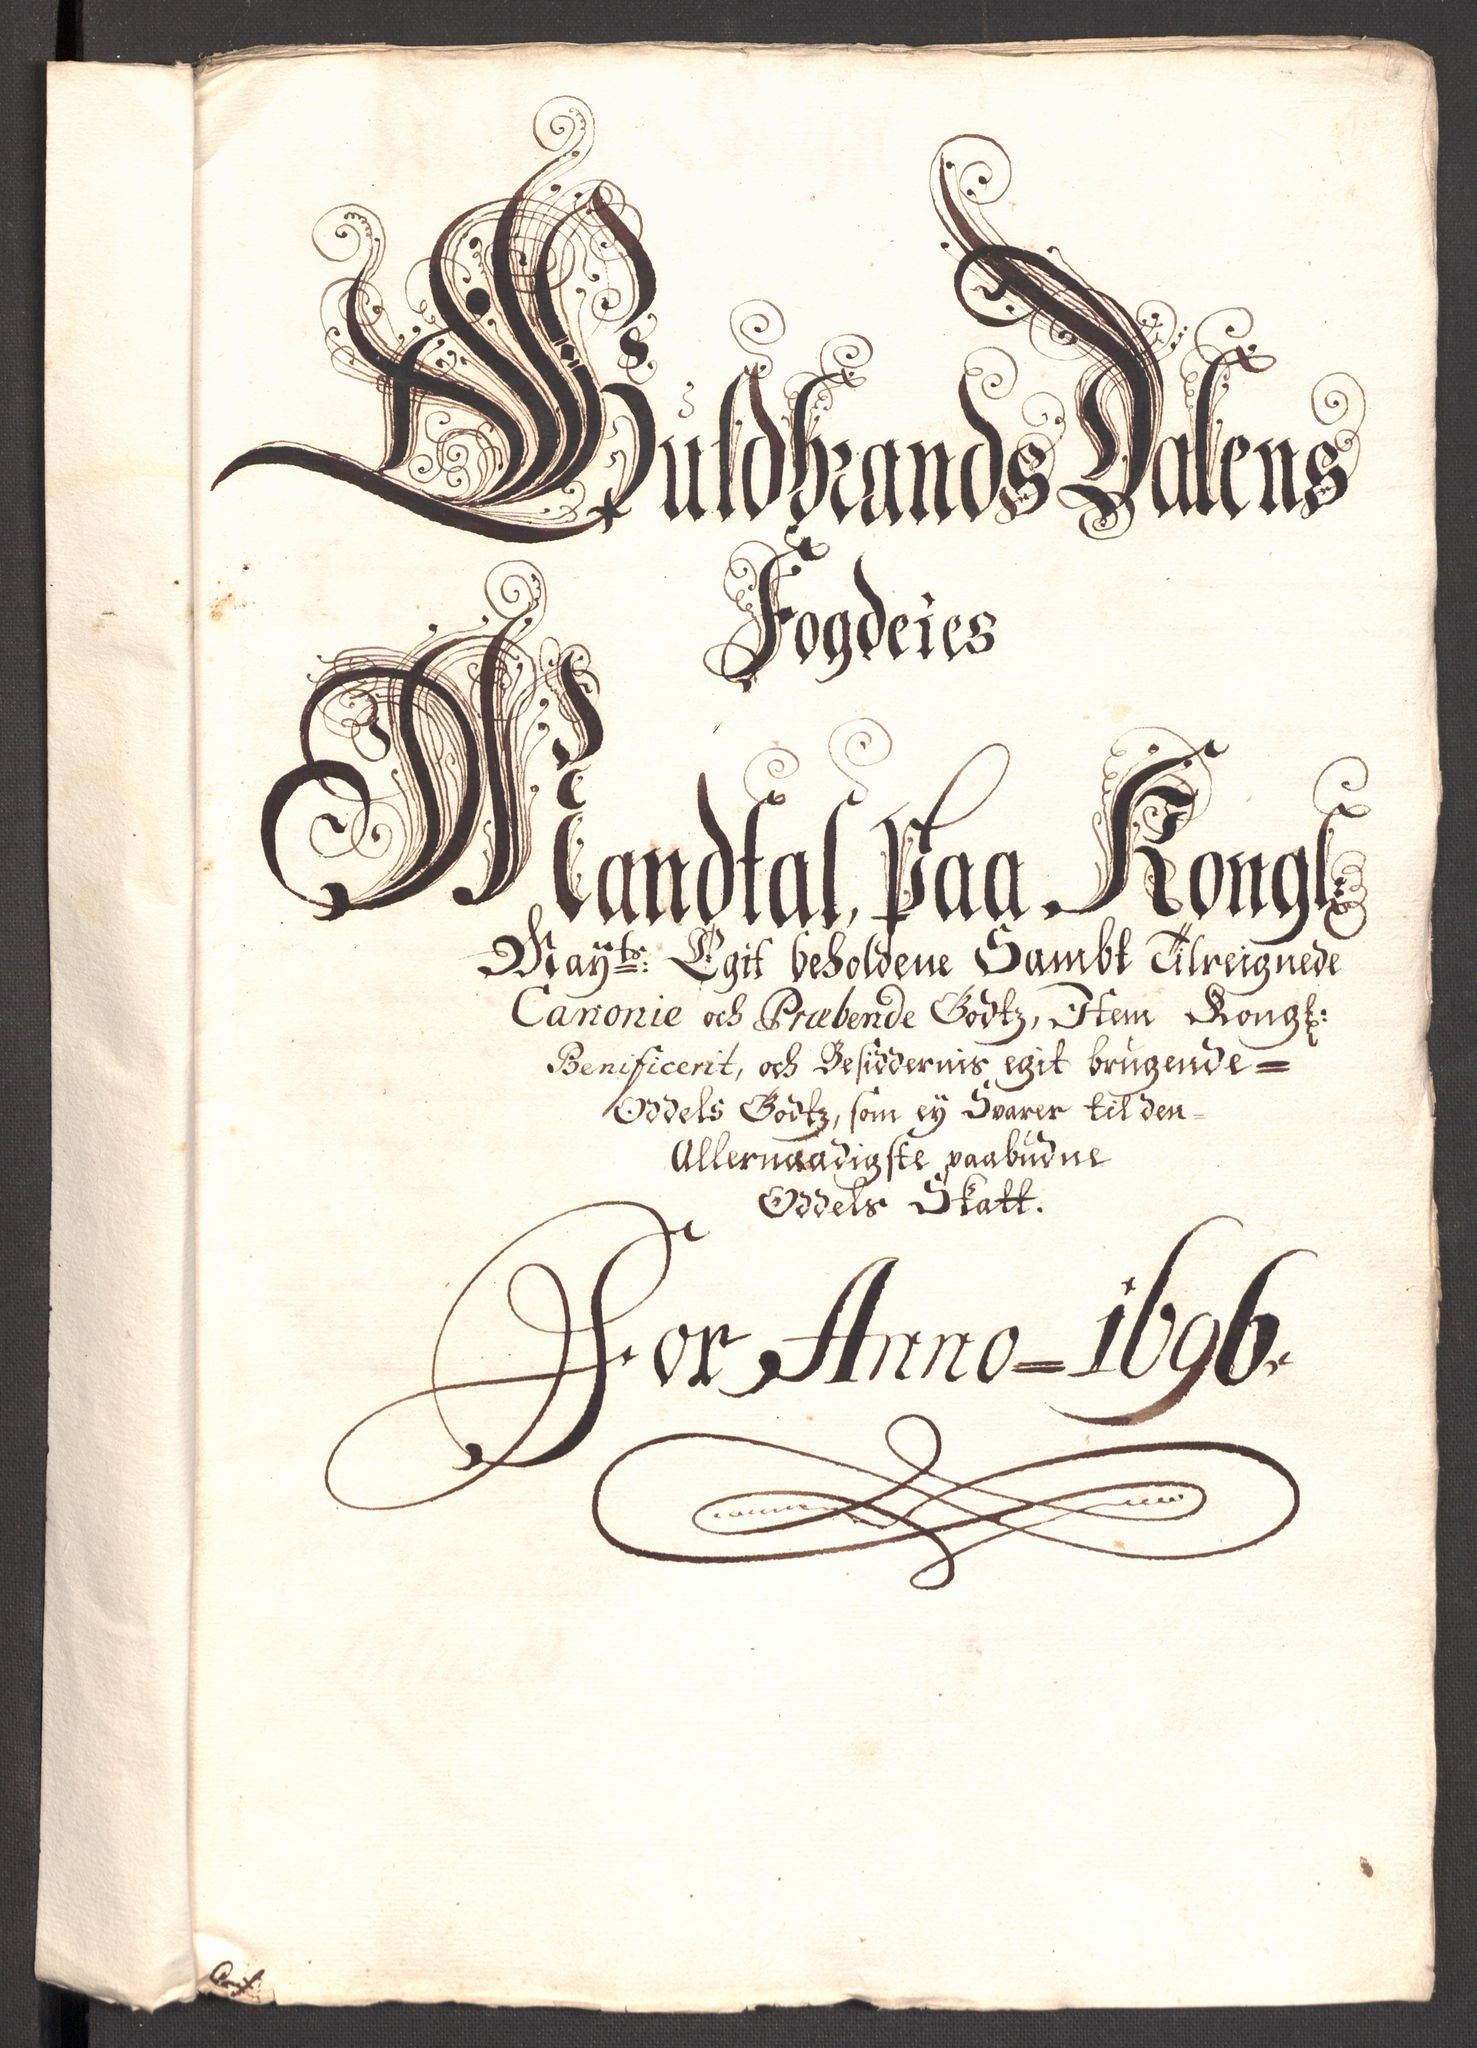 Guldbrands Dalens
Fogderies
Mandtal, Paa Kongl:
Mayts: Egit beholdene Sambt Tilreignede
Canonie och Præbende Godtz, Item Kongl:
Benificerit, och Besiddernis egit brugende=
Oddels Godtz, som ey Svarer til den=
Allernaadigste paabudne
Oddels Skatt.
For Anno=1696.